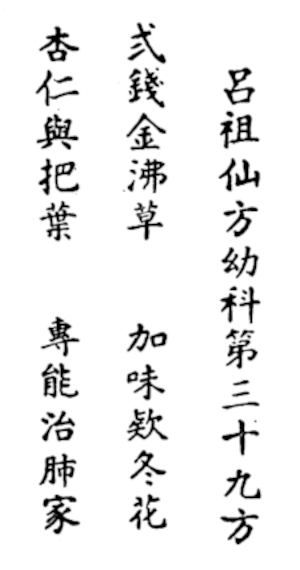 呂祖仙方幼科第三十九方
弍錢金沸草　加味欵冬花
杏仁與把葉　專能治肺家